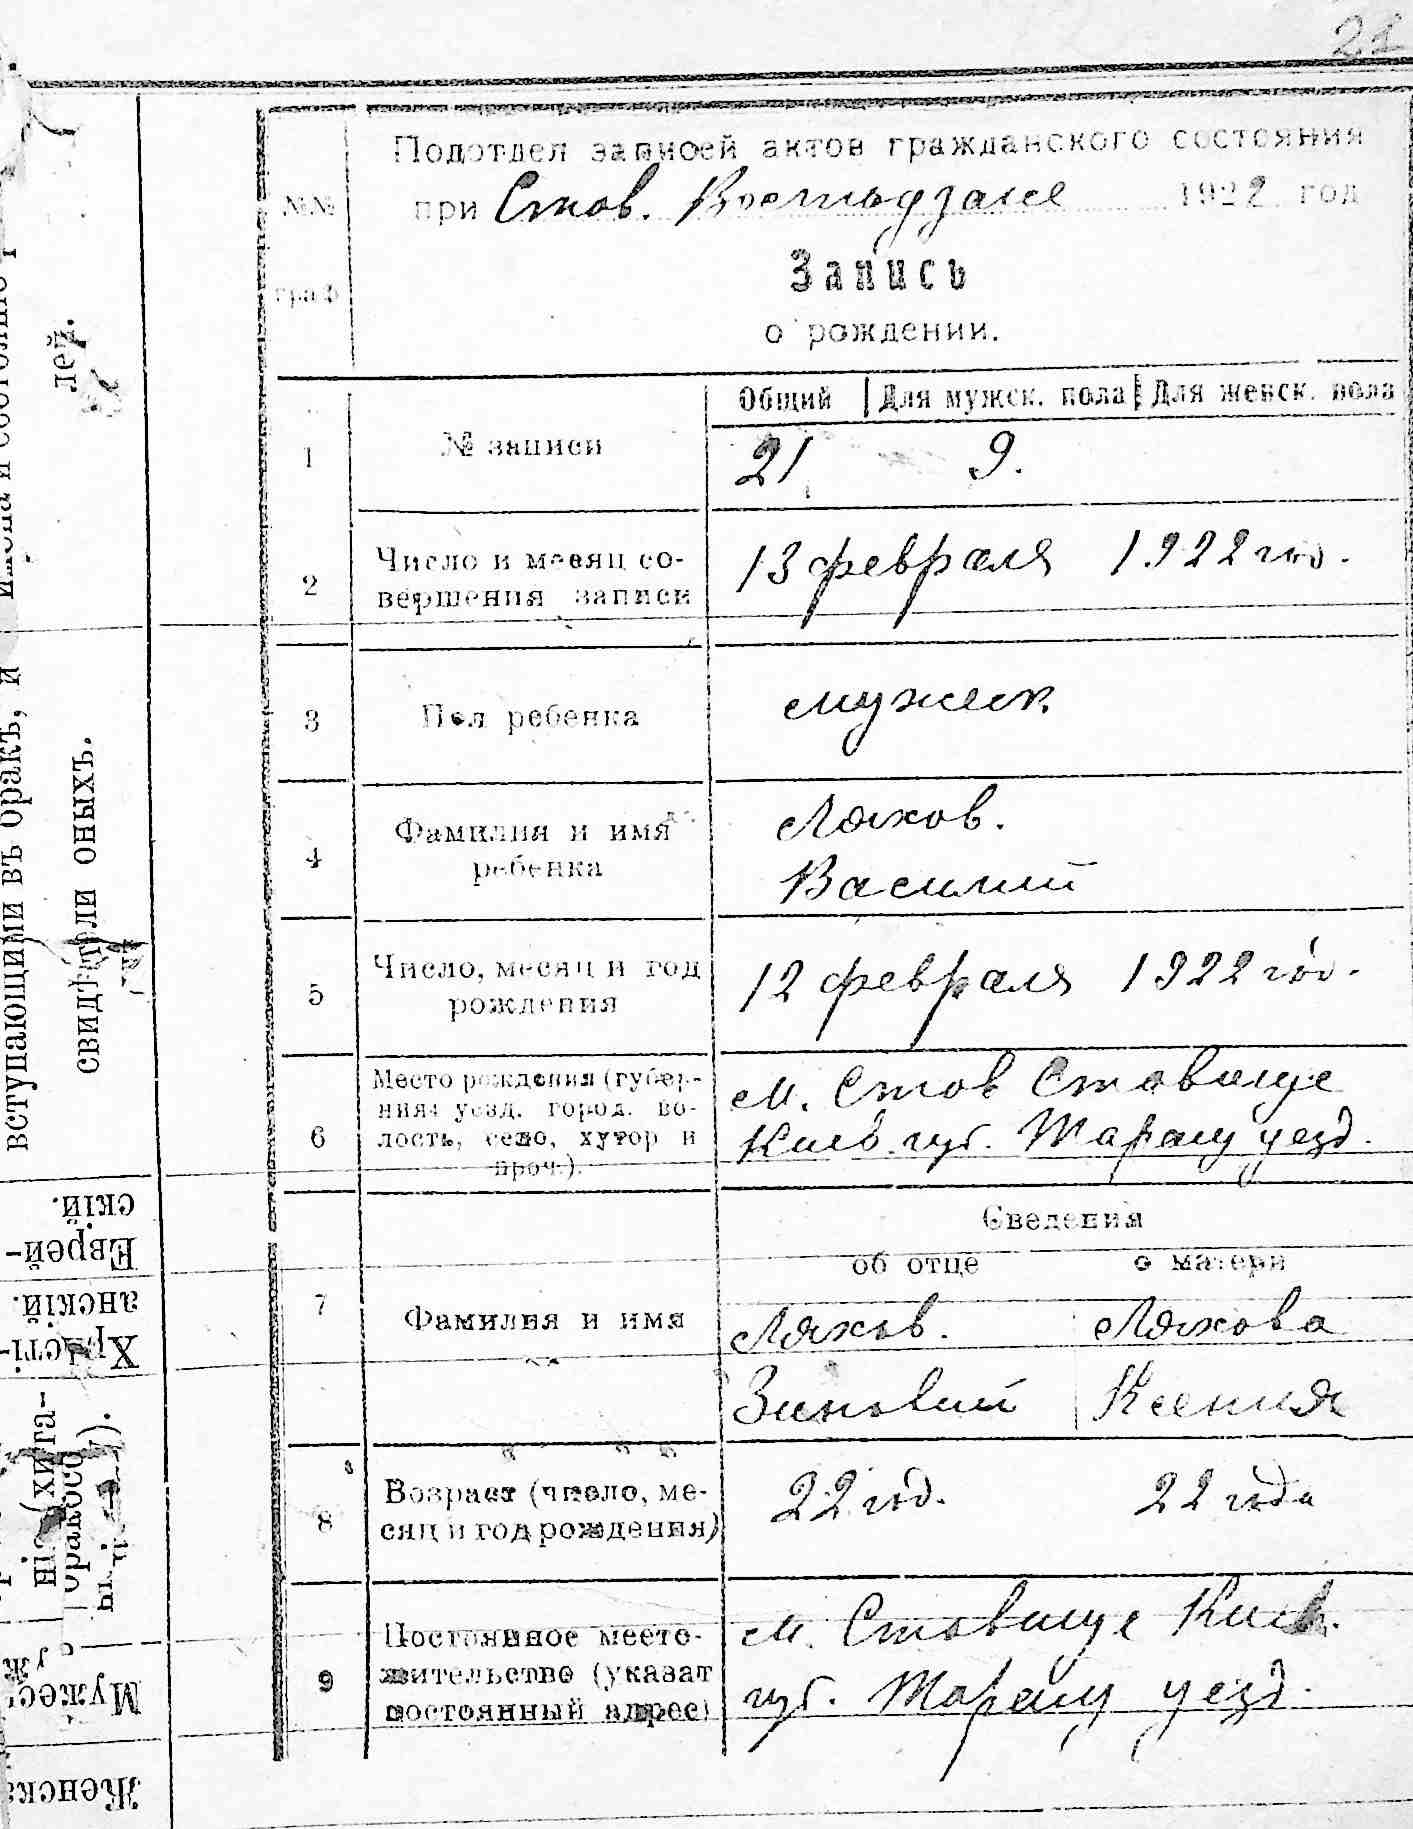 21
Подотдел записей актов гражданского состояния
при Став. 1922 год
№№
граф
Запись
о рождении.
Общий Для мужск. пола Для женск. пола
1 № записи 21 9.
2 Число и месяц со-
вершения записи 13 февраля 1922 год.
3 Пол ребенка мужск.
4 Фамилия и имя
ребенка
Ляхов.
Василий
5 Число, месяц и год
рождения 12 февраля 1922 год.
6 Место рождения (губер-
ния, уезд, город, во-
лость, село, хутор и
проч.).
м. Став Ставище
Киев. губ. Таращ уезд.
Сведения
об отце о матери
7 Фамилия и имя
Ляхов. Ляхова
Зиновий Ксения
8 Возраст (число, ме-
сяц и год рождения) 22 год. 22 года
9 Постоянное место-
жительство (указат
постоянный адрес)
м. Ставище Киев.
губ. Таращ уезд.
лей.
вступающими въ бракъ, и
свидѣтели оныхъ.
Еврей-
скій.
Христі-
анскій.
Мужес
Женска